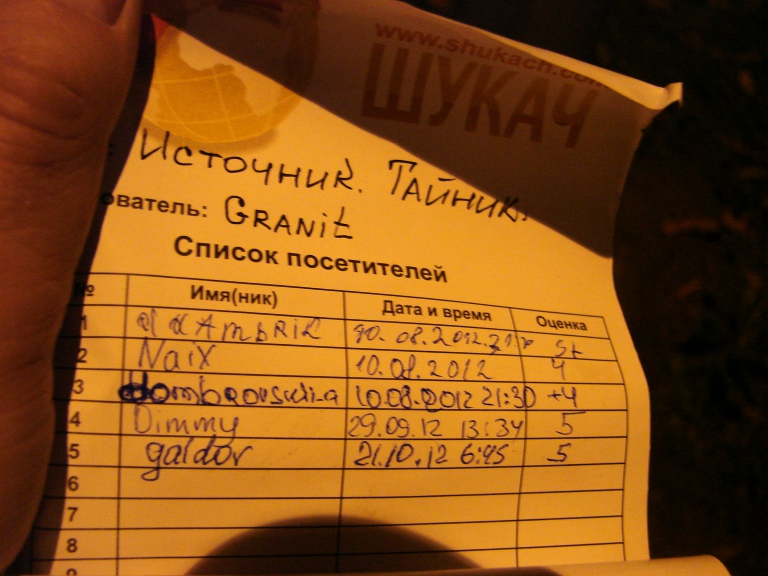 www.shukach.com
ШУКАЧ
Источник. Тайник.
ователь: GRANIt
Список посетителей
№ Имя(ник) Дата и время Оценка
1 10.08.2012. 5+
2 Naix 10.08.2012 4
3 10.08.2012 21:30 +4
4 Dimmy 29.09.12 13:34 5
5 galdor 21.10.12 6:45 5
6
7
8